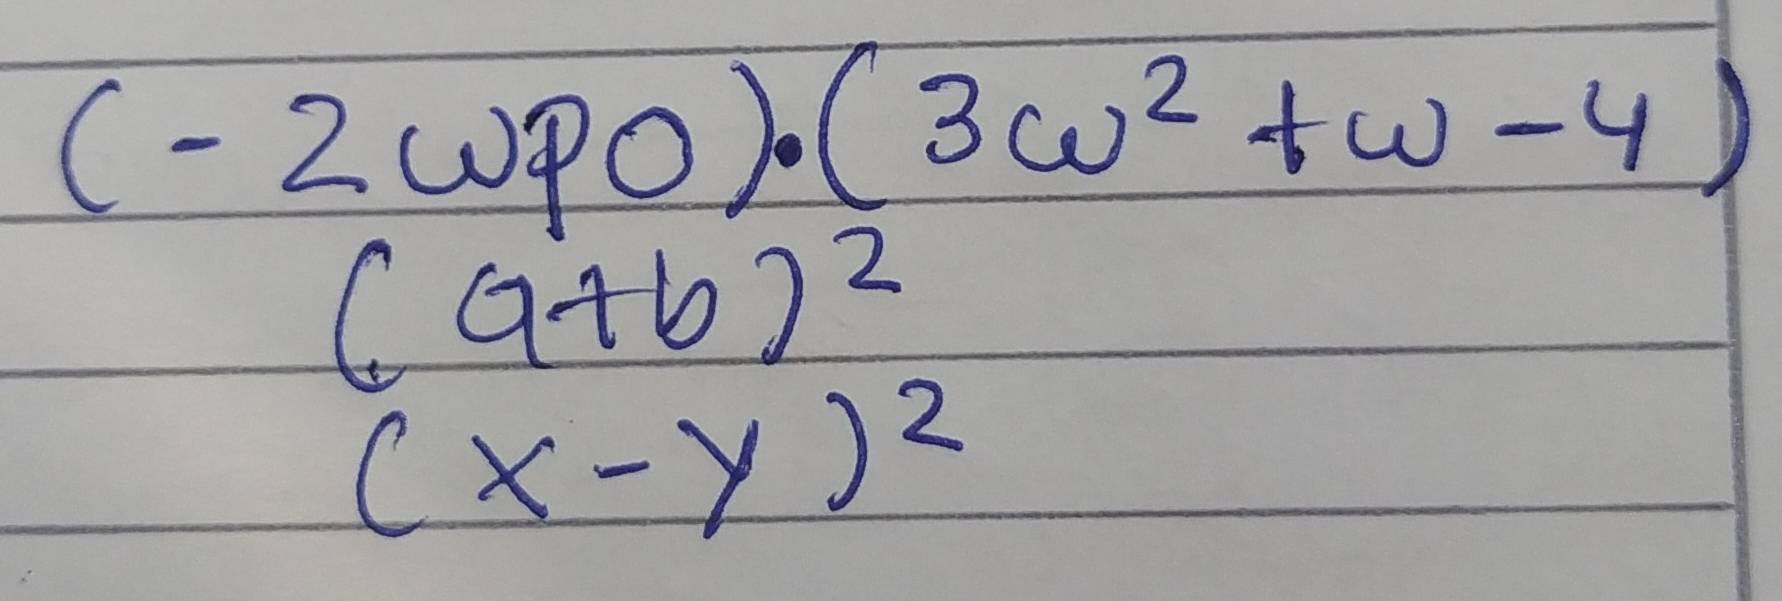 (-2wpo)·(3w²+w-4)
(a+b)²
(x-y)²